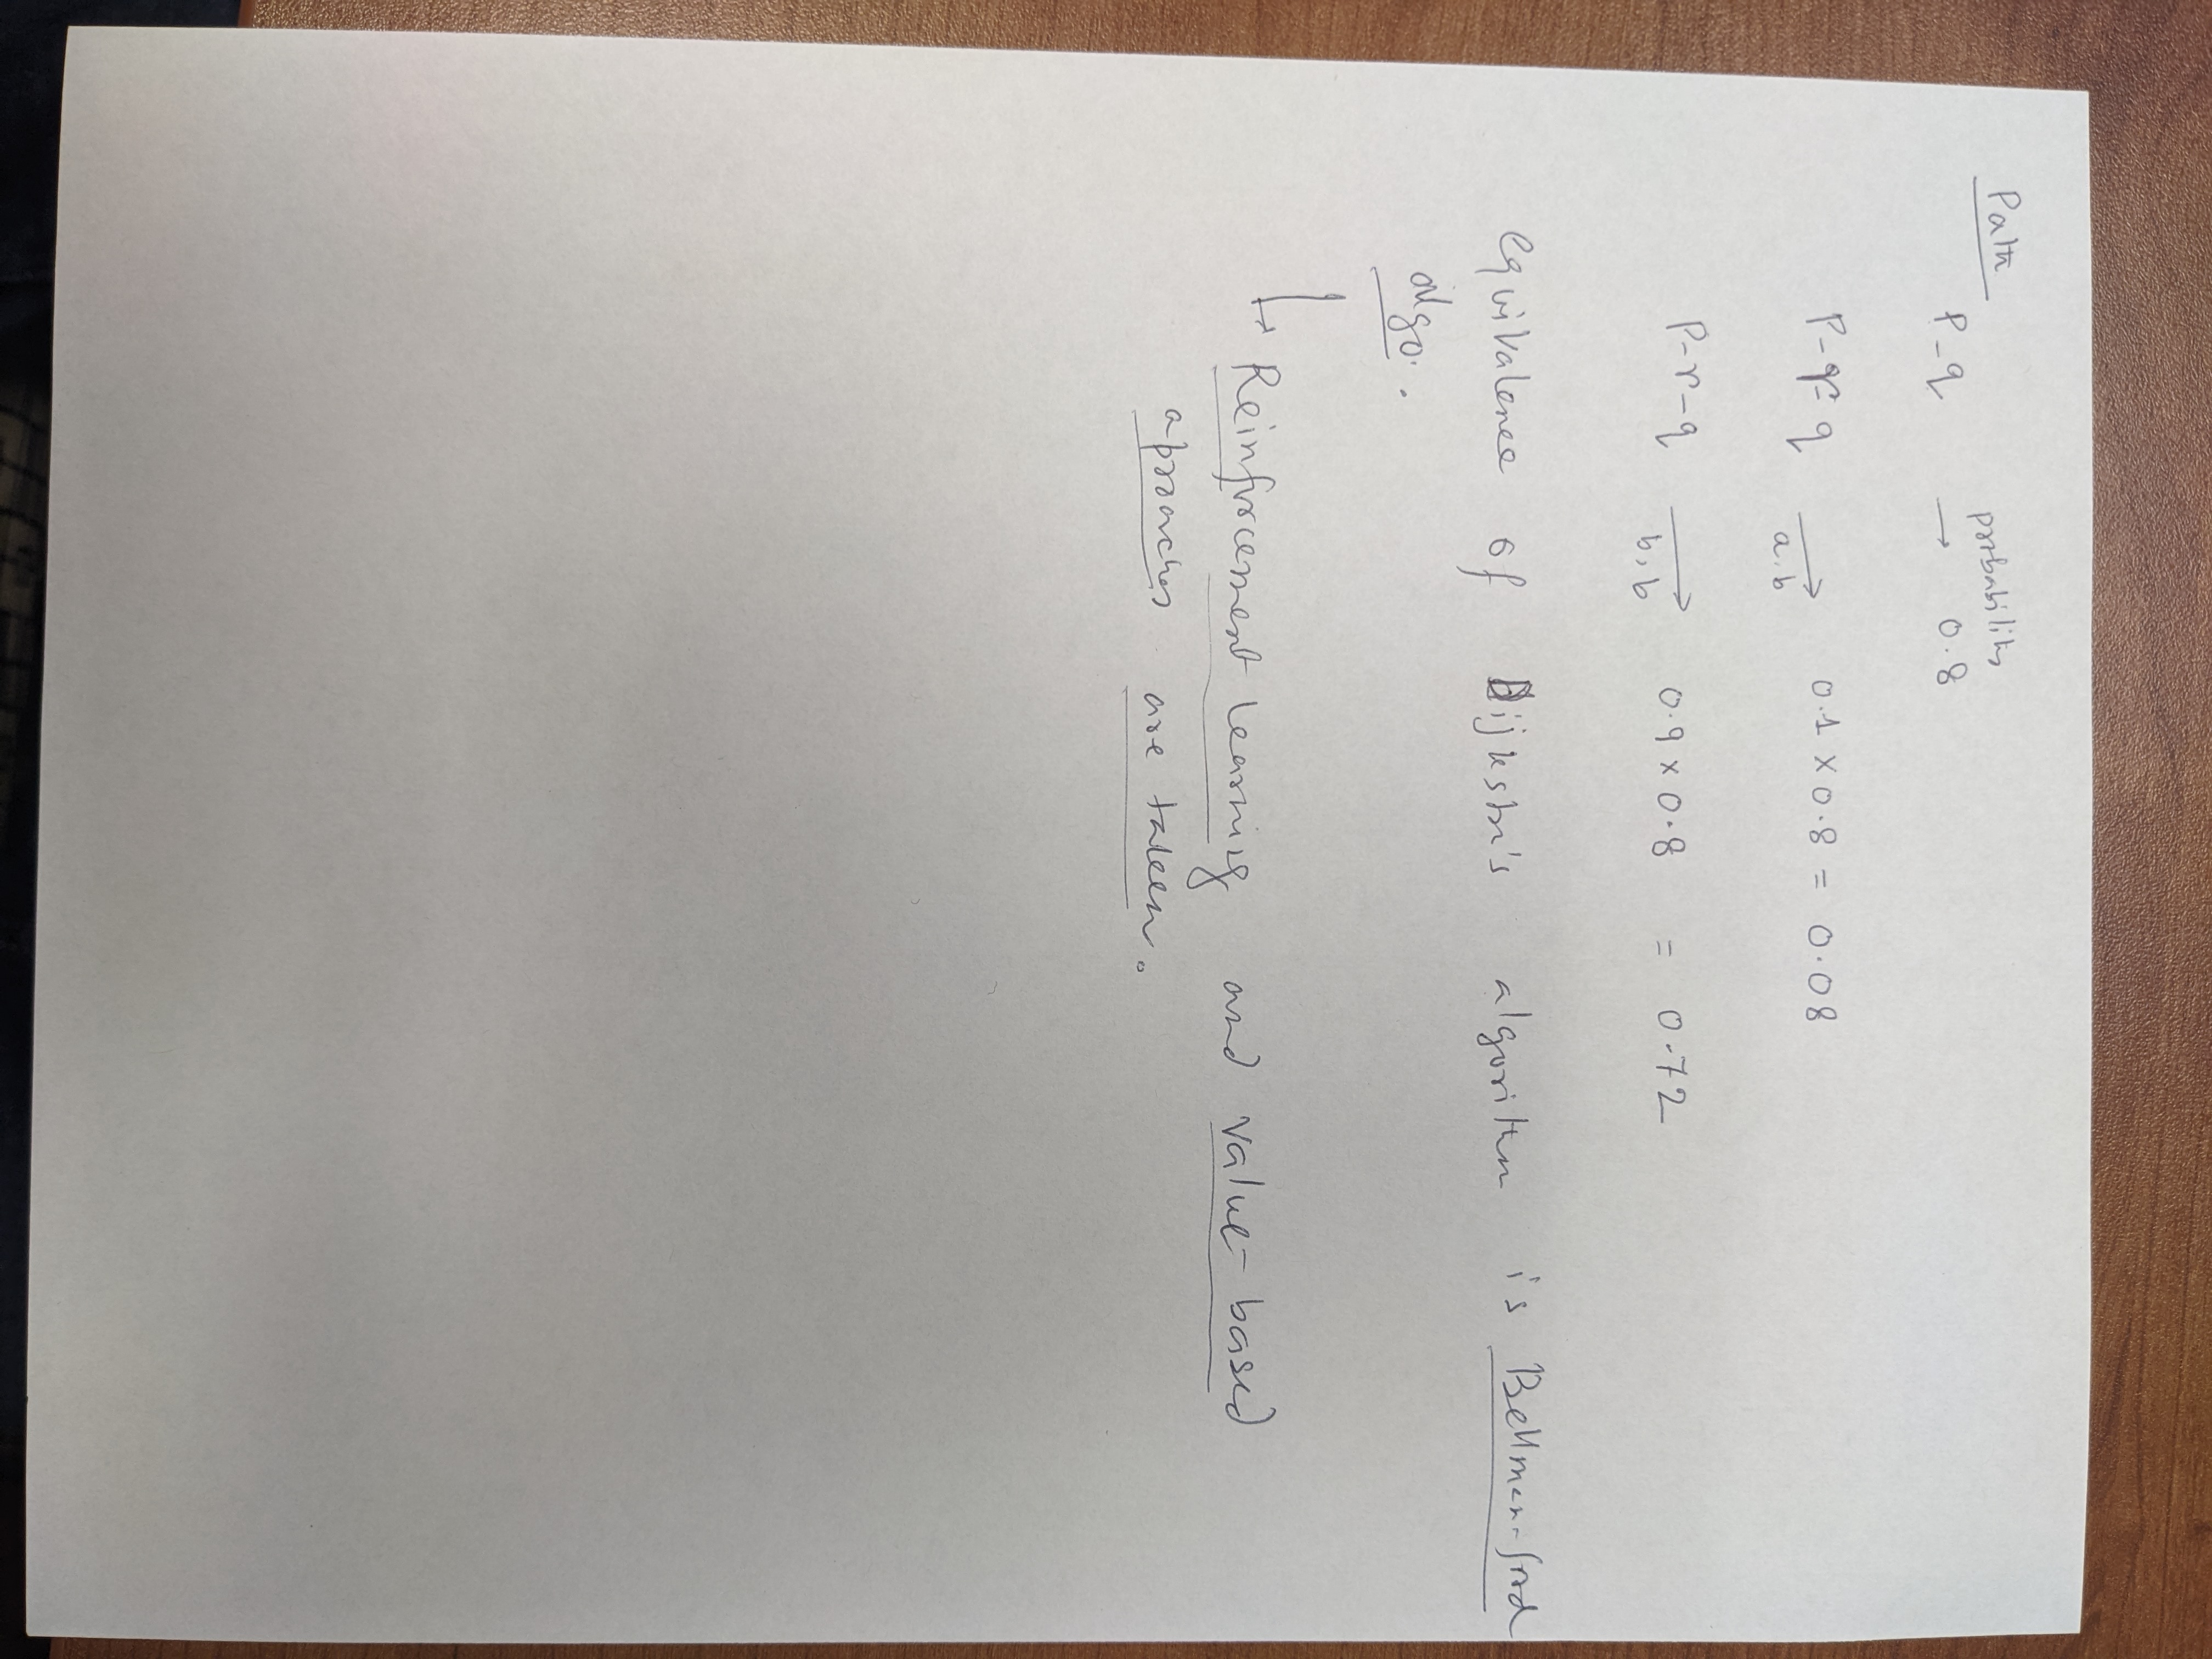 Path
probability
P-q → 0.8
P-q-q a,b → 0.1 × 0.8 = 0.08
P-r-q b,b → 0.9 × 0.8 = 0.72
equivalence of Dijkstra's algorithm is Bellman-ford
algo.
↳ Reinforcement learning and value-based
approaches are taken.